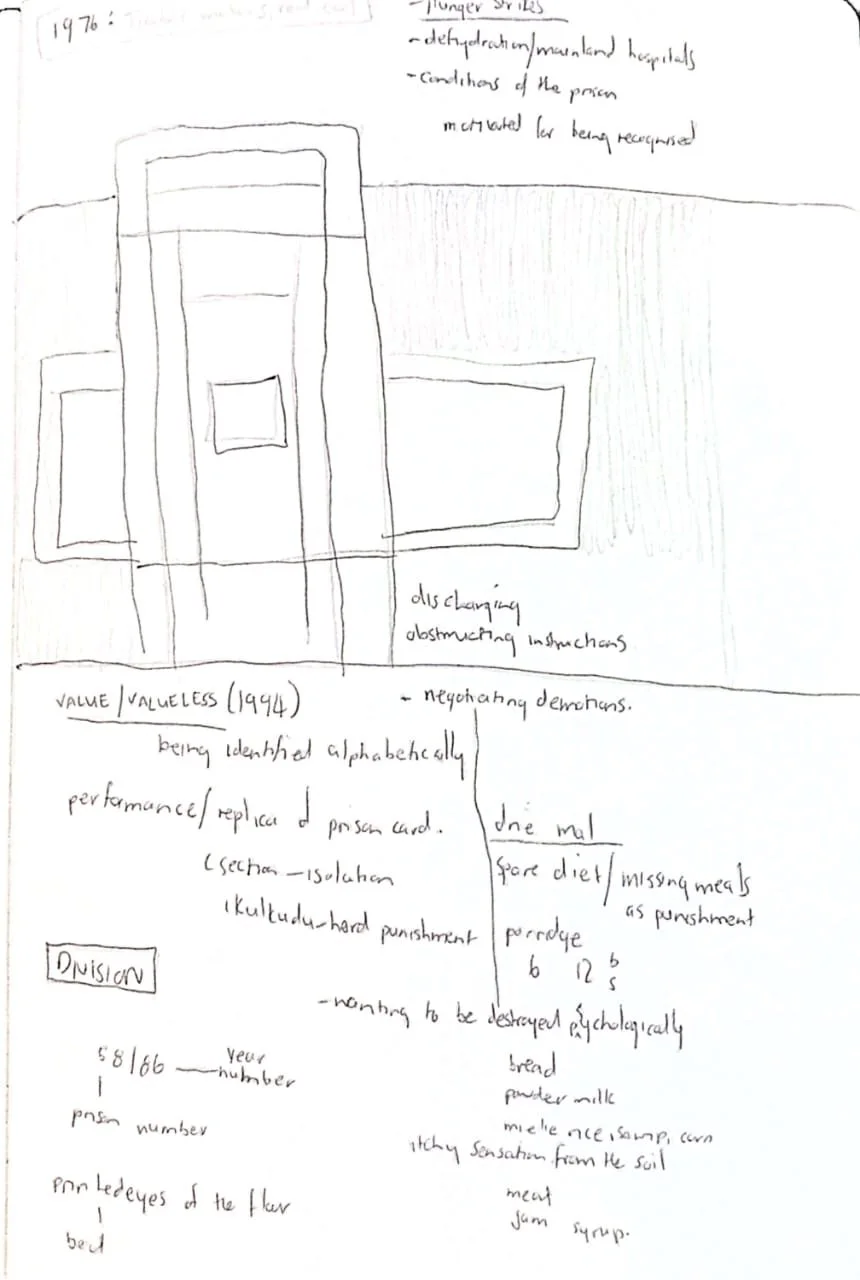 1976:
- Hunger strikes
- dehydration/mainland hospitals
- conditions of the prison
motivated for being recognised
discharging
obstructing instructions
VALUE/VALUELESS (1994)
- negotiating demotions.
being identified alphabetically
performance/replica of prison card.
C section - isolation
Kulkudu - hard punishment
drie mal
spare diet/missing meals
as punishment
porridge
6 12 b
s
DIVISION
- wanting to be destroyed psychologically
58/86 — year
number
prison number
bread
powder milk
mielie rice, samp, corn
itchy sensation from the soil
printed eyes of the floor
bed
meat
jam syrup.